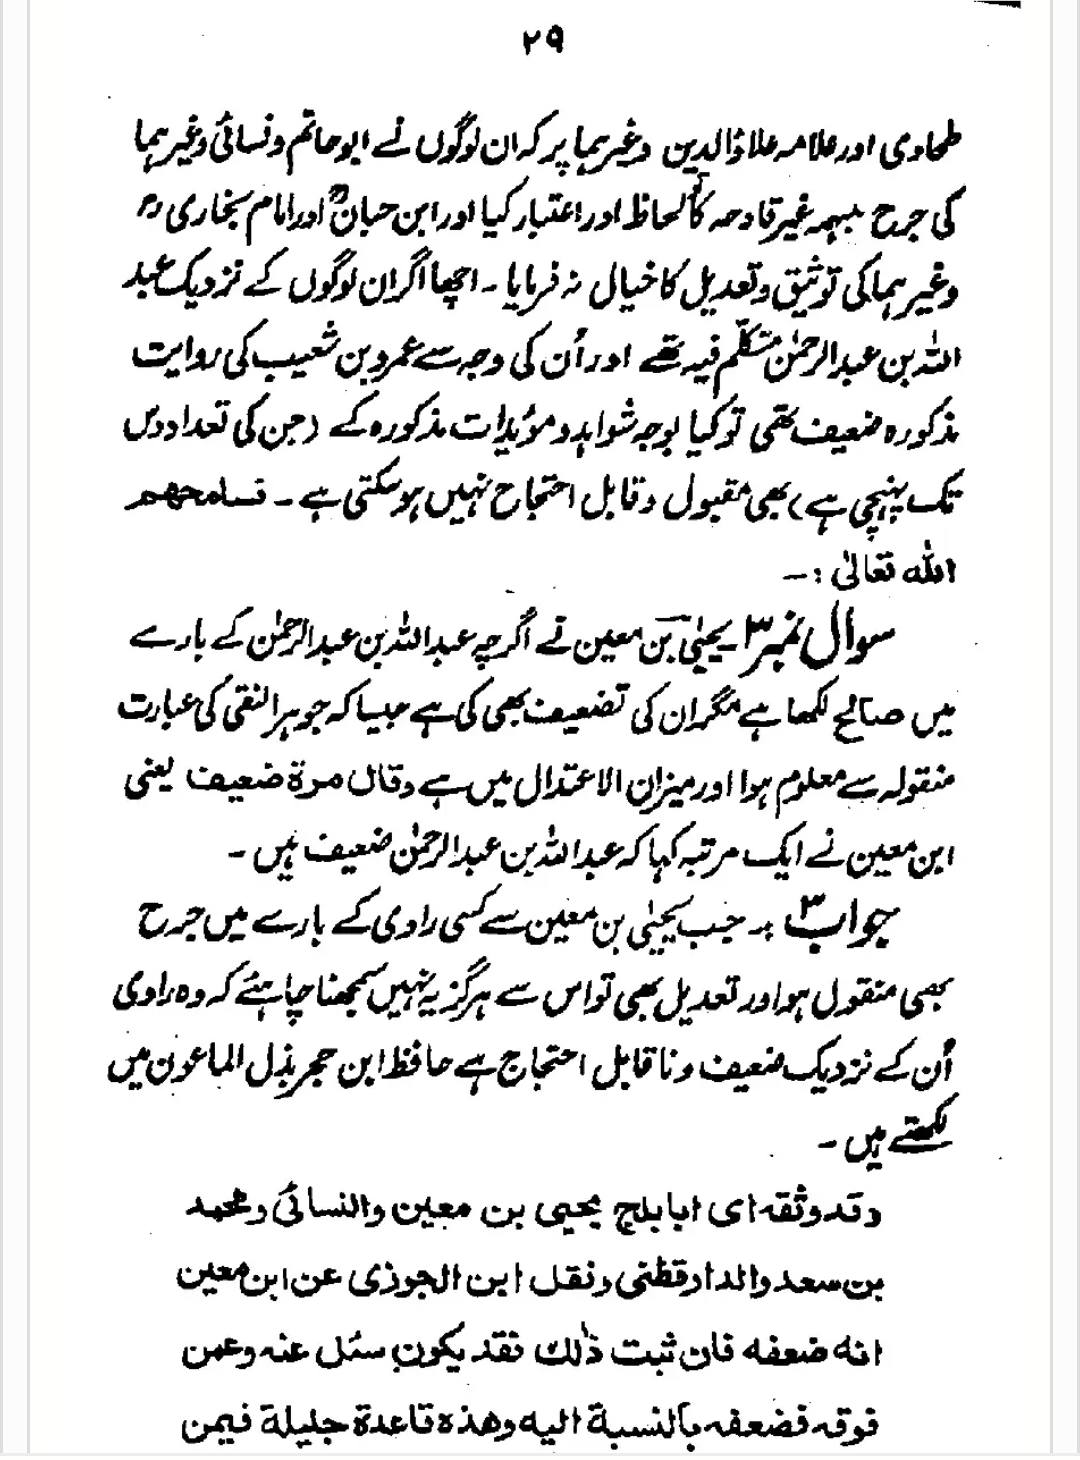 ۲۹
طحاوی اور علامہ علاؤالدین وغیرہما پر کہ ان لوگوں نے ابو حاتم و نسائی وغیرہما
کی جرح مبہمہ غیر قادحہ کا لحاظ اور اعتبار کیا اور ابن حبانؒ اور امام بخاری رح
وغیرہما کی توثیق و تعدیل کا خیال نہ فرمایا۔ اچھا اگر ان لوگوں کے نزدیک عبد
اللہ بن عبدالرحمٰن متکلّم فیہ تھے اور اُن کی وجہ سے عمرو بن شعیب کی روایت
مذکورہ ضعیف تھی تو کیا بوجہ شواہد و مؤیدات مذکورہ کے (جن کی تعداد دس
تک پہنچی ہے) بھی مقبول و قابل احتجاج نہیں ہو سکتی ہے۔ فسامحھم
اللہ تعالیٰ :۔
سوال نمبر ۳۔ یحییٰ بن معین نے اگرچہ عبداللہ بن عبدالرحمٰن کے بارے
میں صالح لکھا ہے مگر ان کی تضعیف بھی کی ہے جیسا کہ جوہر النقی کی عبارت
منقولہ سے معلوم ہوا اور میزان الاعتدال میں ہے وقال مرة ضعیف یعنی
ابن معین نے ایک مرتبہ کہا کہ عبداللہ بن عبدالرحمٰن ضعیف ہیں۔
جواب ۳ :۔ جب یحییٰ بن معین سے کسی راوی کے بارے میں جرح
بھی منقول ہو اور تعدیل بھی تو اس سے ہرگز یہ نہیں سمجھنا چاہئے کہ وہ راوی
اُن کے نزدیک ضعیف و ناقابل احتجاج ہے حافظ ابن حجر بذل الماعون میں
لکھتے ہیں۔
وقد وثقہ ای ابا بلج یحیی بن معین والنسائی ومحمد
بن سعد والدارقطنی ونقل ابن الجوزی عن ابن معین
انہ ضعفہ فان ثبت ذٰلك فقد یکون سئل عنہ وعمن
فوقہ فضعفہ بالنسبة الیہ وھذہ قاعدة جلیلة فیمن